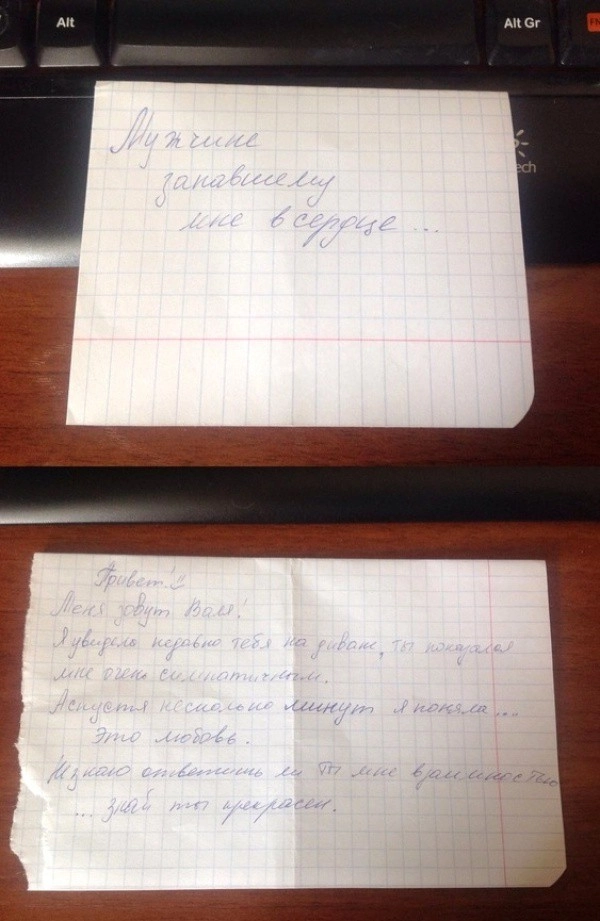 Alt
Alt Gr
FN
ech
Мужчине
запавшему
мне в сердце...
Привет!
Меня зовут Валя!
Я увидела недавно тебя на диване, ты показался
мне очень симпатичным.
А спустя несколько минут я поняла...
Это любовь.
Не знаю ответишь ли Ты мне взаимностью
... знай ты прекрасен.